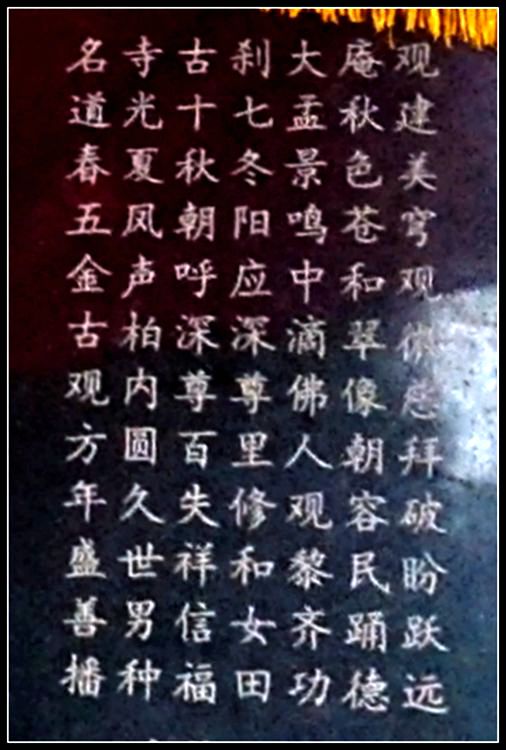 名寺古刹大庵观
道光十七孟秋建
春夏秋冬景色美
五凤朝阳鸣苍穹
金声呼应中和观
古柏深深滴翠微
观内尊尊佛像慈
方圆百里人朝拜
年久失修观容破
盛世祥和黎民盼
善男信女齐踊跃
播种福田功德远